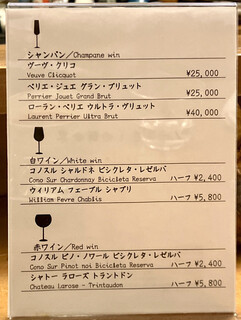 シャンパン／Champane win
ヴーヴ・クリコ
Veuve Clicquot ¥25,000
ペリエ・ジュエ グラン・ブリュット
Perrier Jouet Grand Brut ¥25,000
ローラン・ペリエ ウルトラ・ブリュット
Laurent Perrier Ultra Brut ¥40,000
白ワイン／White win
コノスル シャルドネ ビシクレタ・レゼルバ
Cono Sur Chardonnay Bicicleta Reserva ハーフ ¥2,400
ウィリアム フェーブル シャブリ
William Fevre Chablis ハーフ ¥5,800
赤ワイン／Red win
コノスル ピノ・ノワール ビシクレタ・レゼルバ
Cono Sur Pinot noi Bicicleta Reserva ハーフ ¥2,400
シャトー ラローズ トラントドン
Chateau Larose - Trintaudon ハーフ ¥5,800